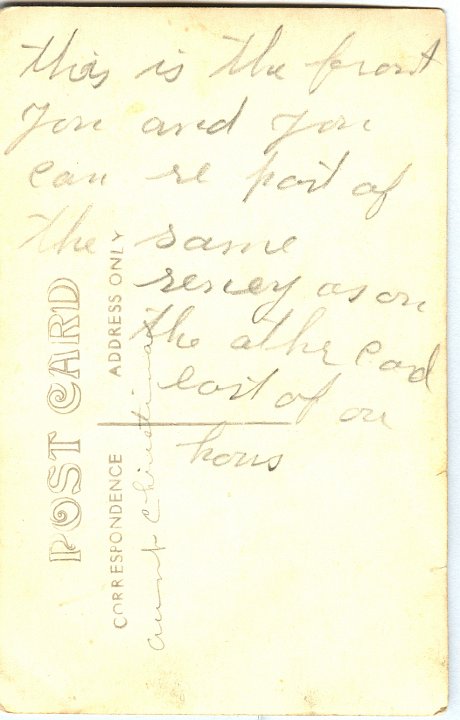 this is the front
you and you
can se part of
the same
seney as on
the othe card
east of our
hous
POST CARD
CORRESPONDENCE
ADDRESS ONLY
aunt Christina